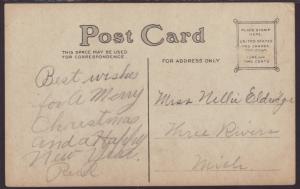 Post Card
THIS SPACE MAY BE USED
FOR CORRESPONDENCE.
FOR ADDRESS ONLY.
PLACE STAMP HERE
UNITED STATES
AND CANADA
ONE CENT
TWO CENTS
Best wishes
for A Merry
Christmas
and a Happy
New Year.
Miss Nellie Eldridge
Three Rivers
Mich